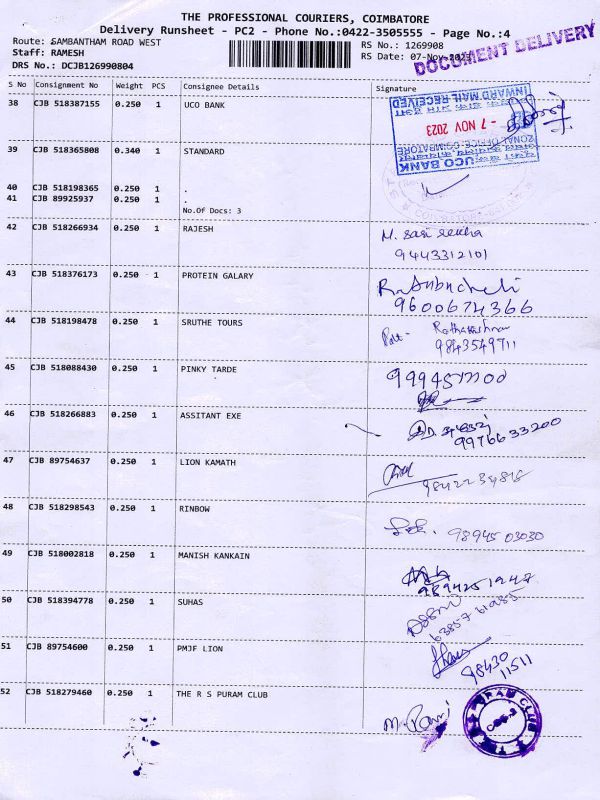 THE PROFESSIONAL COURIERS, COIMBATORE
Delivery Runsheet - PC2 - Phone No.:0422-3505555 - Page No.:4
Route: SAMBANTHAM ROAD WEST
RS No.: 1269908
Staff: RAMESH
RS Date: 07-Nov-2023
DOCUMENT DELIVERY
DRS No.: DCJB126990804
S No Consignment No Weight PCS Consignee Details Signature
38 CJB 518387155 0.250 1 UCO BANK
INWARD MAIL RECEIVED
- 7 NOV 2023
ZONAL OFFICE, COIMBATORE
UCO BANK
39 CJB 518365808 0.340 1 STANDARD
40 CJB 518198365 0.250 1 .
41 CJB 89925937 0.250 1 .
No.Of Docs: 3
42 CJB 518266934 0.250 1 RAJESH
M. Sasi rekha
9443312101
43 CJB 518376173 0.250 1 PROTEIN GALARY
9600674366
44 CJB 518198478 0.250 1 SRUTHE TOURS
9843549711
45 CJB 518088430 0.250 1 PINKY TARDE
46 CJB 518266883 0.250 1 ASSITANT EXE
9976633200
47 CJB 89754637 0.250 1 LION KAMATH
48 CJB 518298543 0.250 1 RINBOW
9894503030
49 CJB 518002818 0.250 1 MANISH KANKAIN
9894251947
50 CJB 518394778 0.250 1 SUHAS
51 CJB 89754600 0.250 1 PMJF LION
98430
11511
52 CJB 518279460 0.250 1 THE R S PURAM CLUB
M. Rani